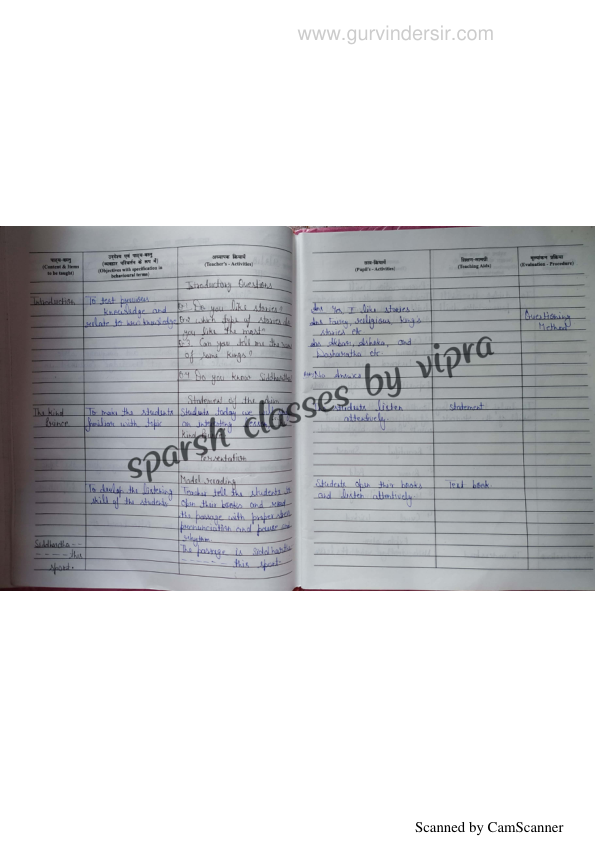 www.gurvindersir.com
पाठ्य-वस्तु
(Content & Items
to be taught)
उद्देश्य एवं पाठ्य-वस्तु
(व्यवहार परिवर्तन के रूप में)
(Objectives with specification in
behavioural terms)
अध्यापक क्रियायें
(Teacher's - Activities)
Introductory Questions
Introduction
To test previous
knowledge and
relate to new knowledge
Q.1 Do you like stories?
Q.2 which type of stories do
you like the most?
Q.3 Can you tell me the
of some kings?
Q.4 Do you know Siddhartha
Statement of the
The Kind
Prince
To make the students
familiar with topic
Students today we
an interesting lesson
Kind
Presentation
Model reading
To develop the listening
skill of the students
Teacher tell the students to
open their books and read
the passage with proper
pronunciation and pause
rhythm
Siddhartha --
----- this
spont.
The passage is Siddhartha
------ this spont.
छात्र-क्रियायें
(Pupil's - Activities)
शिक्षण-सामग्री
(Teaching Aids)
मूल्यांकन प्रक्रिया
(Evaluation - Procedure)
Ans Yes, I like stories
Ans Fairy, religious, king's
stories etc
Ans Akbar, Ashoka, and
Dasharatha etc.
Questioning
Method
Ans No answer
Students listen
attentively.
statement
Students open their books
and listen attentively.
Text book.
sparsh classes by vipra
Scanned by CamScanner